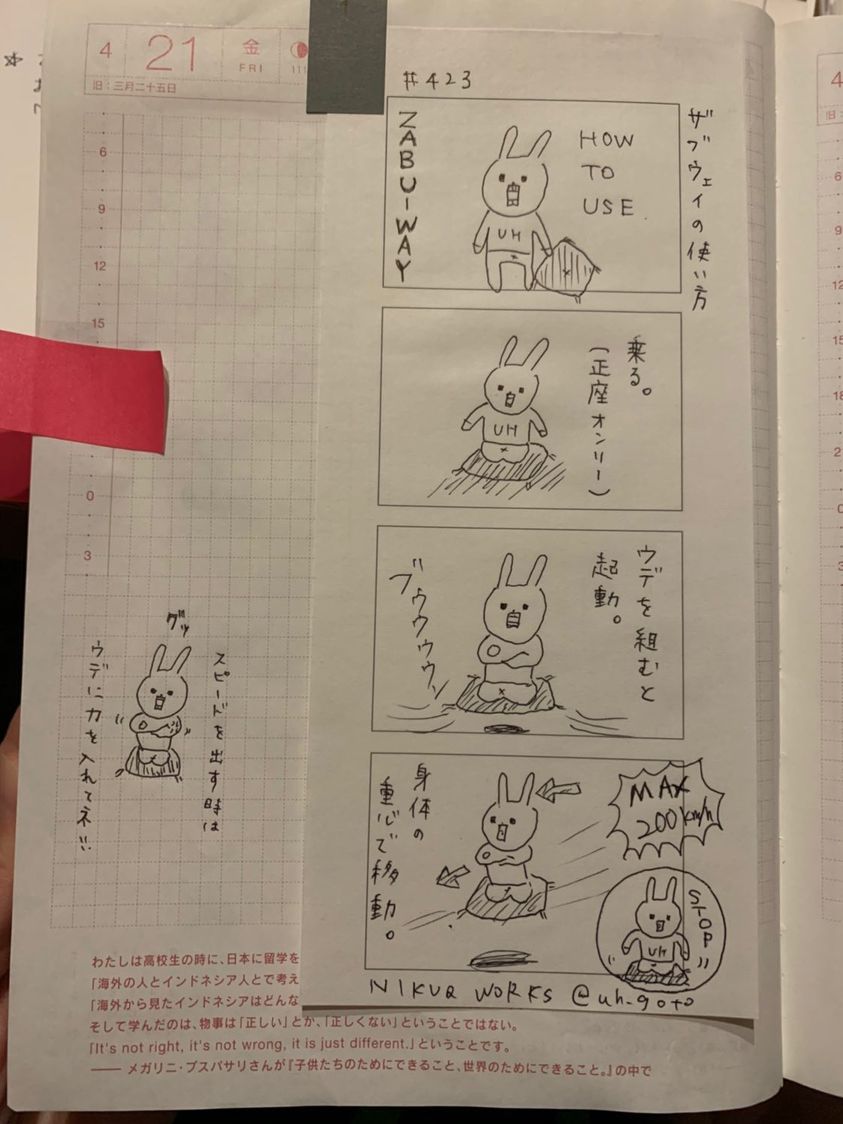 4 21 金 FRI
旧：三月二十五日
6
9
12
15
0
3
#423
ザブウェイの使い方
ZABU-WAY
HOW
TO
USE
UH
乗る。
(正座オンリー)
UH
ウデを組むと
起動。
ブウウウウン
MAX
200km/h
身体の
重心で移動。
STOP
UH
NIKUQ WORKS @uh_goto
スピードを出す時は
グッ
ウデに力を入れてネ!!
わたしは高校生の時に、日本に留学を
「海外の人とインドネシア人とで考え
「海外から見たインドネシアはどんな
そして学んだのは、物事は「正しい」とか、「正しくない」ということではない。
「It's not right, it's not wrong, it is just different.」ということです。
—— メガリニ・プスパサリさんが『子供たちのためにできること、世界のためにできること。』の中で